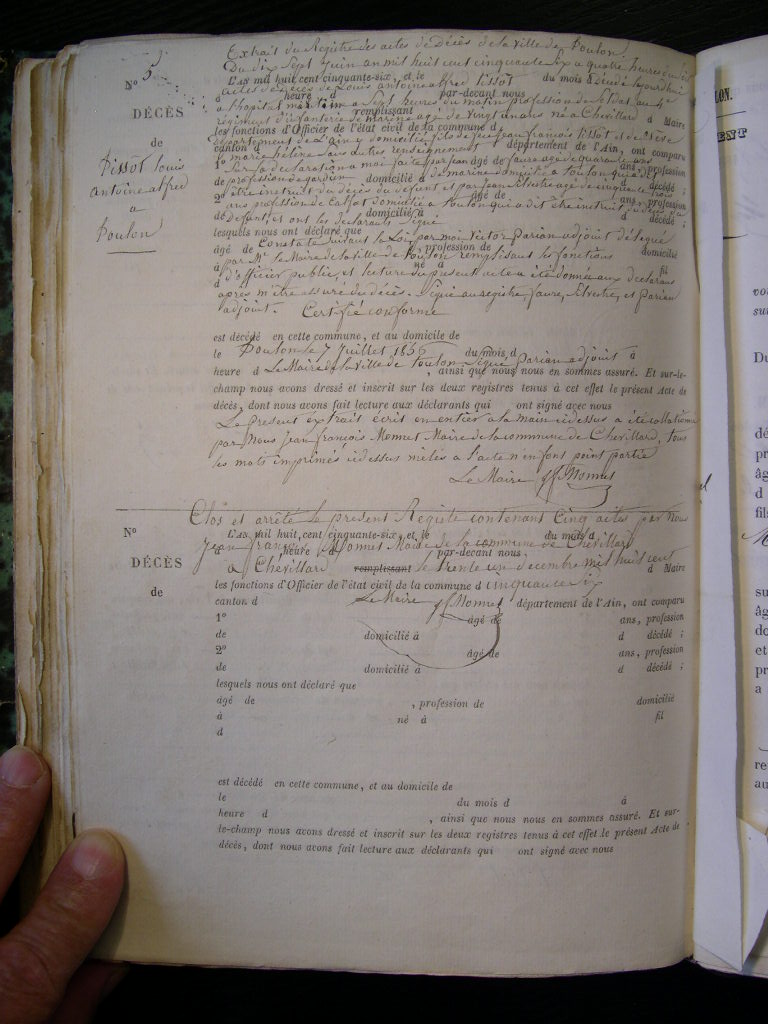 Extrait du Registre des actes de Décès de la ville de Toulon
Du dix Sept Juin an mil huit cent cinquante six a quatre heures du soir
N° 5
L'AN mil huit cent cinquante-six, et le du mois d
acte de décès de Louis antoine alfred Pissot décédé aujourd'hui
à heure d par-devant nous
DÉCÈS
a l'hopital maritime a Sept heures du matin profession de Soldat au 4e
remplissant d Maire
régiment d'infanterie de marine age de vingt un ans né a Chevillard
les fonctions d'Officier de l'état civil de la commune d
de
département de L'ain y domicilié fils de feu jean françois Pissot et de
canton d département de l'Ain, ont comparu
Pissot Louis
marie hélène sans autres renseignement
1° âgé de ans, profession
antoine alfred
Sur la déclaration a moi faite par Jean faure age de quarante ans
de domicilié à d décédé ;
a
profession de gardien de marine domicilié a toulon qui a dit
2° âgé de ans, profession
Toulon
être instruit du décès du défunt et par Jean Silvestre age de cinquante trois
de domicilié à d décédé ;
ans profession de domicilié a toulon qui a dit être instruit du décès du
défunt, et ont les déclarants signé
lesquels nous ont déclaré que
Constaté suivant la Loi par moi Victor Parian adjoint délégué
âgé de , profession de domicilié
par Mr le Maire de la ville de Toulon remplissant les fonctions
à né à fil
d'officier public, et lecture du présent acte a été donnée aux déclarans
d
apres m'être assuré du décès. Signé au registre, faure, Silvestre, et Parian
adjoint. Certifié conforme
est décédé en cette commune, et au domicile de
le Toulon le 7 Juillet 1856 du mois d à
heure d Le Maire de la ville de Toulon Signé Parian adjoint , ainsi que nous nous en sommes assuré. Et sur-le-
champ nous avons dressé et inscrit sur les deux registres tenus à cet effet le présent Acte de
décès, dont nous avons fait lecture aux déclarants qui ont signé avec nous
Le present extrait écrit en entier a la main ci dessus a été collationné
par Nous Jean françois Monnet Maire de la commune de Chevillard, tous
les mots imprimés ci dessus mêlés a l'acte n'en font point partie
Le Maire Jf Monnet
Clos et arrêté le present Registe contenant Cinq actes par nous
N°
L'AN mil huit cent cinquante-six, et le du mois d
Jean françois Monnet Maire de la commune de Chevillard
à heure d par-devant nous
DÉCÈS
a Chevillard remplissant le trente un decembre mil huit cent d Maire
de
les fonctions d'Officier de l'état civil de la commune d cinquante six
canton d Le Maire Jf Monnet département de l'Ain, ont comparu
1° âgé de ans, profession
de domicilié à d décédé ;
2° âgé de ans, profession
de domicilié à d décédé ;
lesquels nous ont déclaré que
âgé de , profession de domicilié
à né à fil
d
est décédé en cette commune, et au domicile de
le du mois d à
heure d , ainsi que nous nous en sommes assuré. Et sur-
le-champ nous avons dressé et inscrit sur les deux registres tenus à cet effet le présent Acte de
décès, dont nous avons fait lecture aux déclarants qui ont signé avec nous